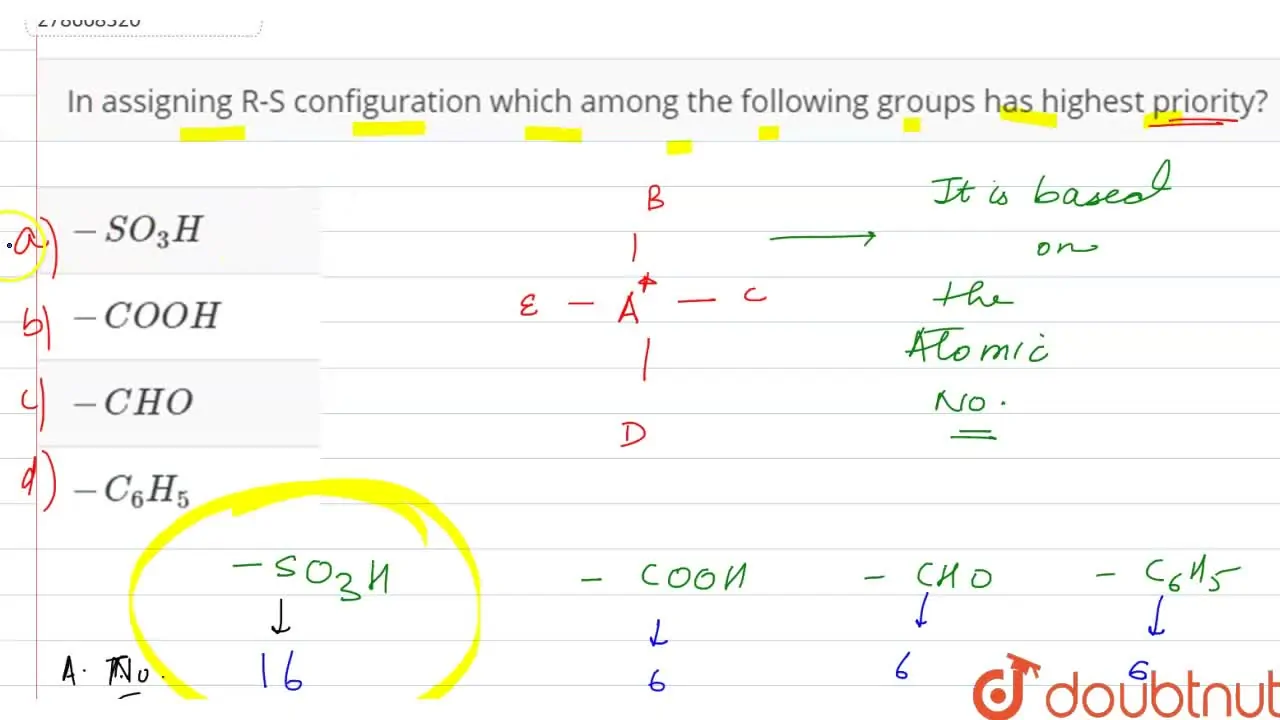 278668320
In assigning R-S configuration which among the following groups has highest priority?
a) -SO₃H
b) -COOH
c) -CHO
d) -C₆H₅
B
E - A* - C
D
It is based
on
the
Atomic
No.
-SO₃H - COOH - CHO - C₆H₅
A. No. 16 6 6 6
doubtnut